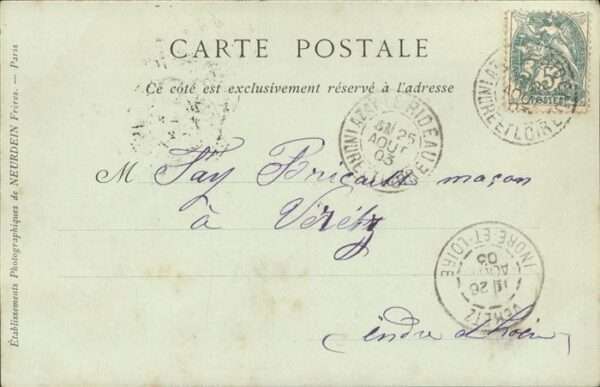 CARTE POSTALE
Ce côté est exclusivement réservé à l'adresse
M Fay Bricault maçon
à Véretz
indre et Loire
Établissements Photographiques de NEURDEIN Frères. — Paris
AZAY-LE-RIDEAU
25
AOUT
03
INDRE-ET-LOIRE
INDRE-ET-LOIRE
26
AOUT
03
VERETZ
5